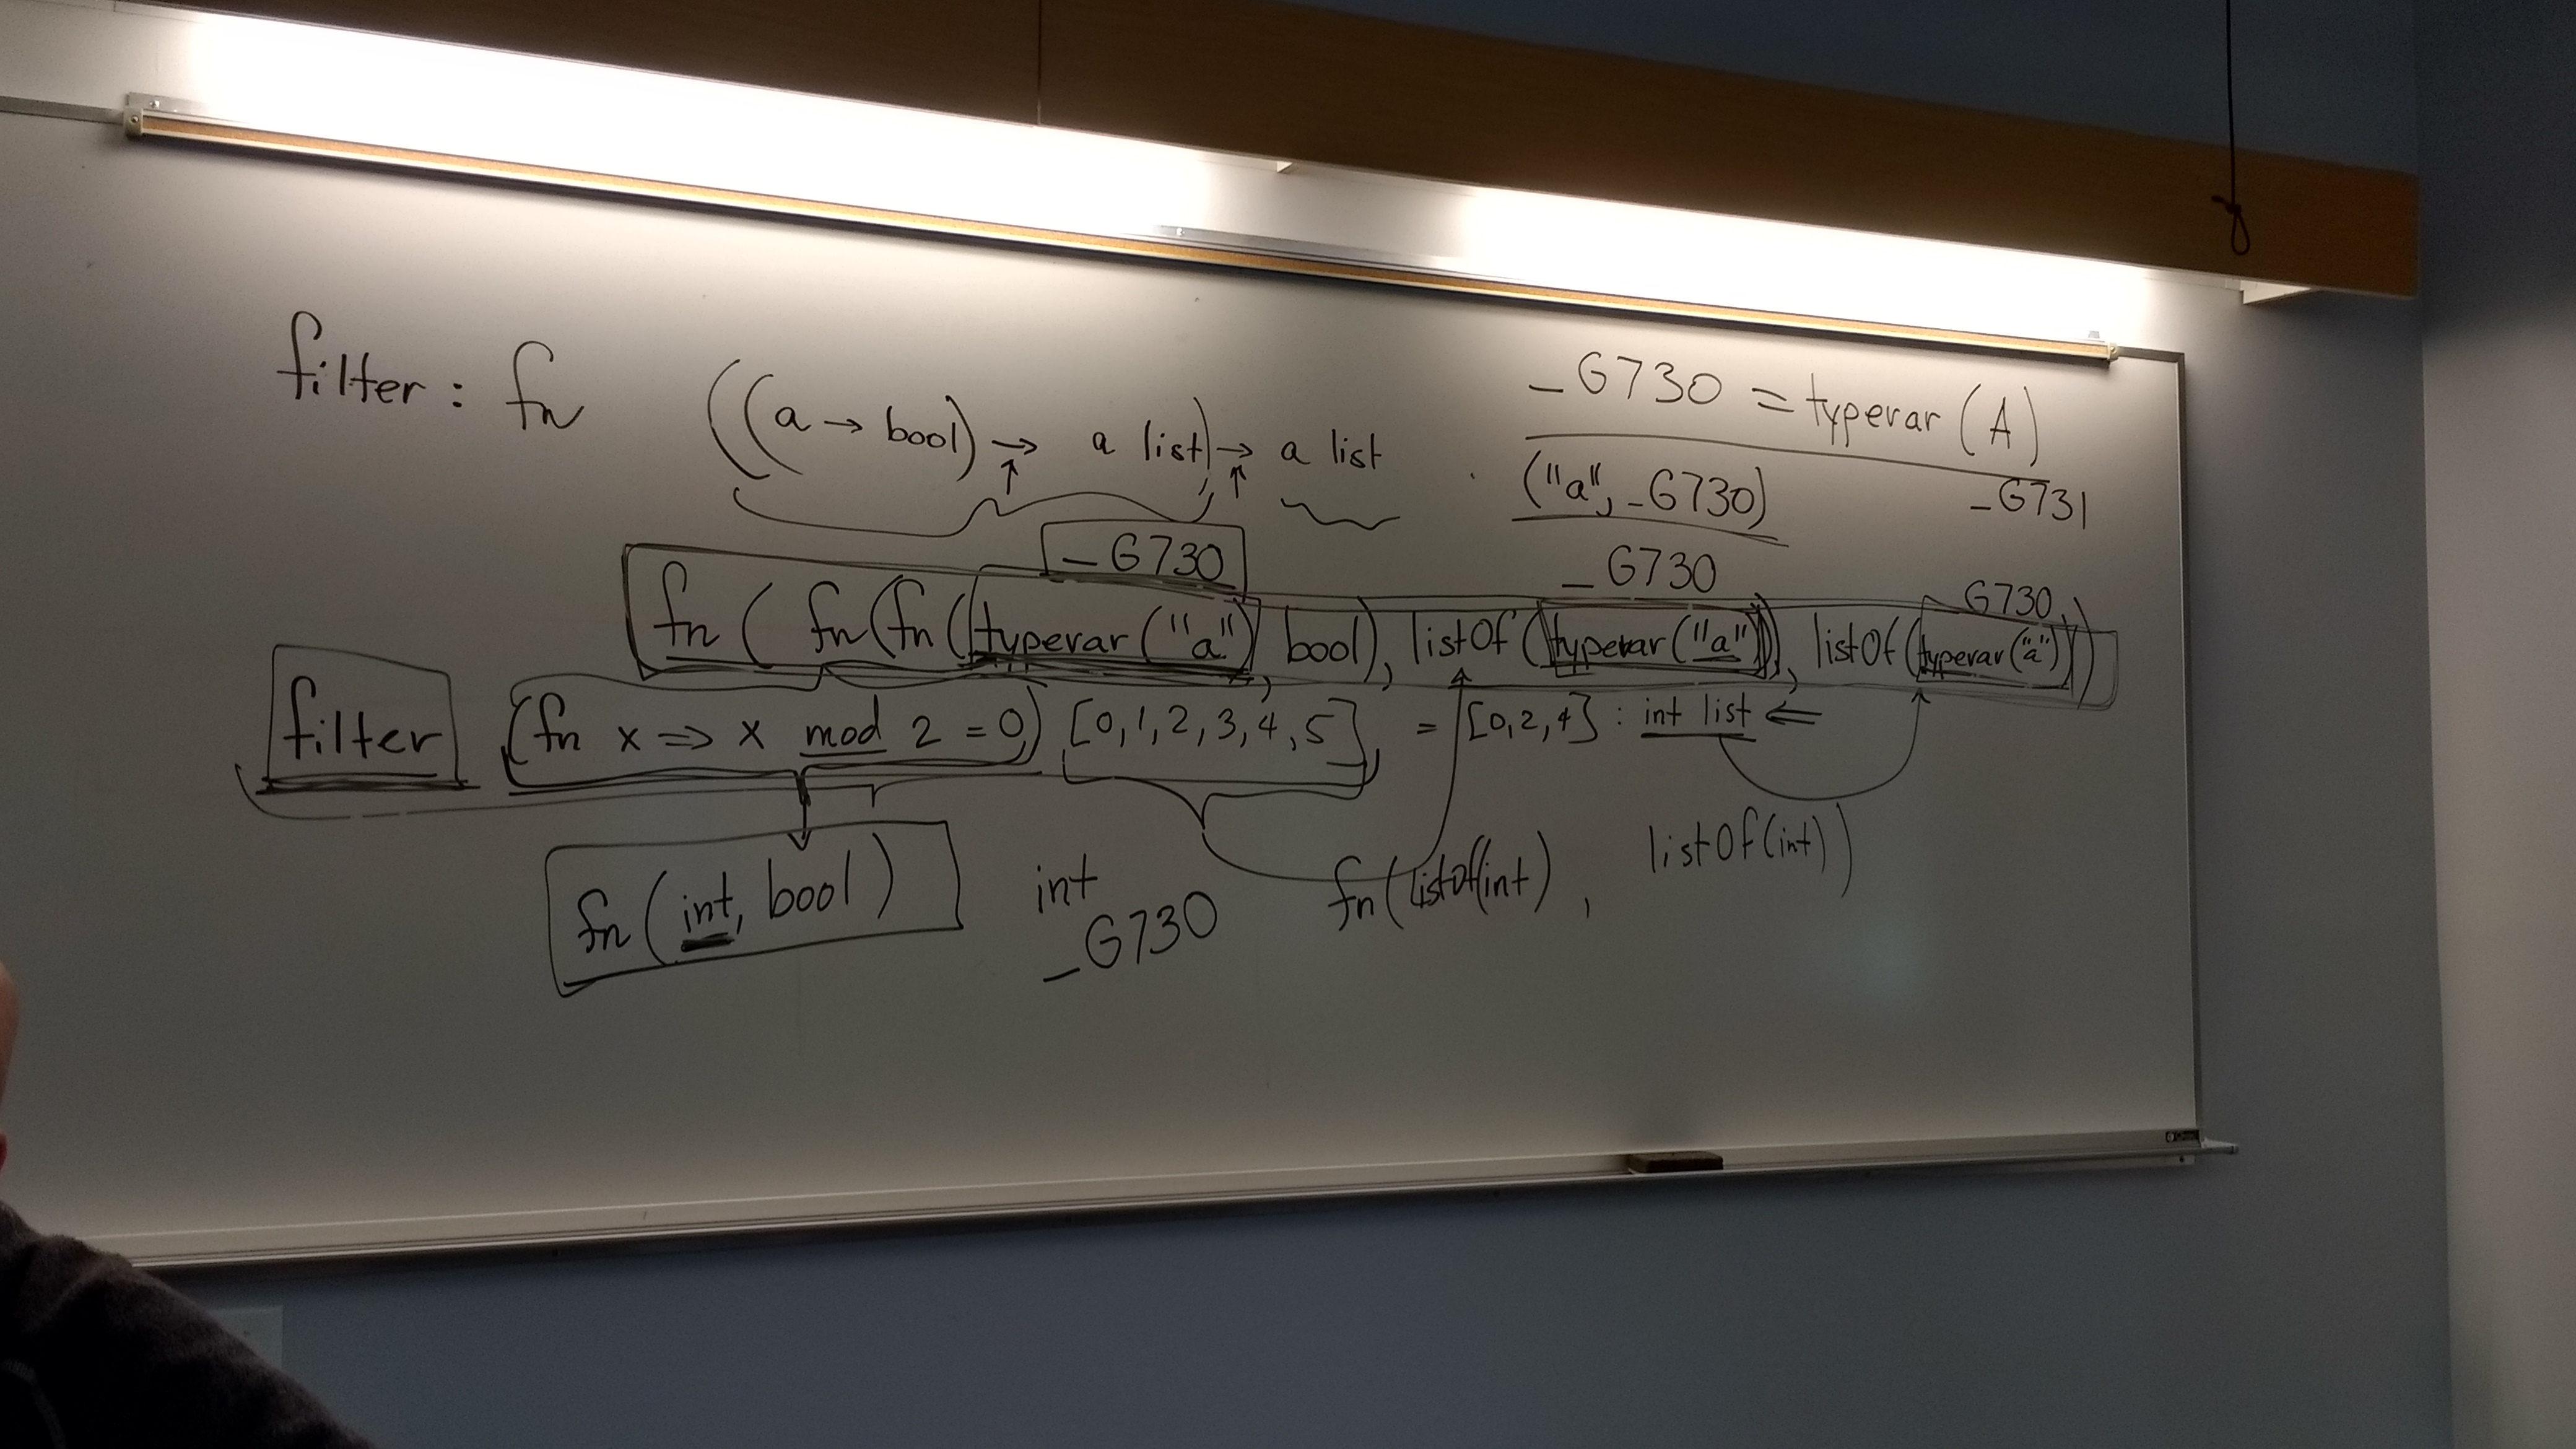 filter : fn ((a → bool) → a list) → a list
_G730 = typevar (A)
("a", _G730) _G731
_G730 _G730 G730
fn ( fn (fn (typevar ("a"), bool), listOf (typevar ("a")), listOf (typevar ("a")))
filter (fn x => x mod 2 = 0) [0,1,2,3,4,5] = [0,2,4] : int list ⇐
fn (int, bool) int fn (listOf(int), listOf(int))
_G730